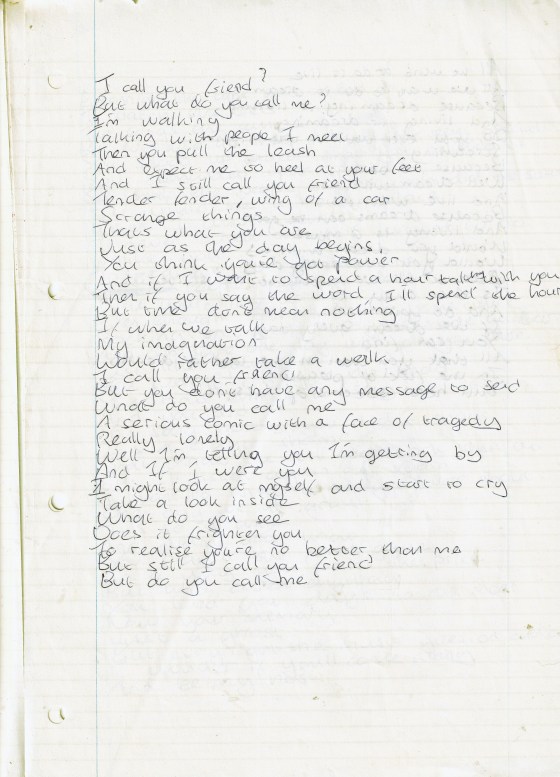 I call you friend?
But what do you call me?
I'm walking
Talking with people I meet
Then you pull the leash
And expect me to heel at your feet
And I still call you friend
Tender fender, wing of a car
Strange things
Thats what you are
Just as the day begins,
You think you've got power
And if I want to spend a hour talking with you
Then if you say the word, I'll spend the hour
But time don't mean nothing
If when we talk
My imagnation
Would rather take a walk
I call you friend
But you don't have any message to send
What do you call me
A serious comic with a face of tragedy
Really lonely
Well I'm telling you I'm getting by
And If I were you
I might look at myself and start to cry
Take a look inside
What do you see
Does it frighten you
To realise you're no better than me
But still I call you friend
But do you call me